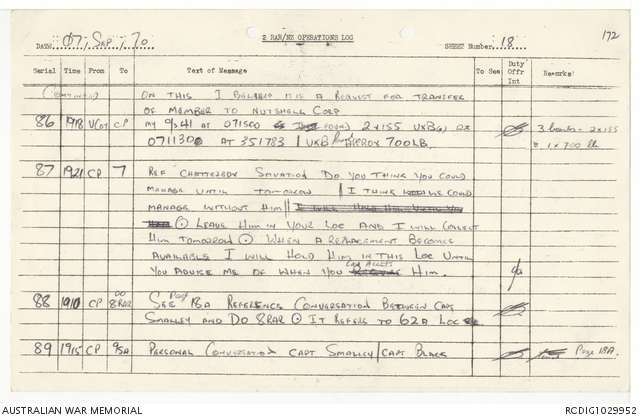 2 RAR/NZ OPERATIONS LOG
172
DATE 07 / SEP / 70 SHEET Number 18
Serial Time From To Text of Message To See Duty Offr Int Remarks
(CONTINUED) ON THIS I BELIEVE IT IS A REQUEST FOR TRANSFER
OF MEMBER TO NUTSHELL CORP
86 1918 CP MY 9341 AT 071500 2 x 155 UXB(s) 3 bombs - 2 x 155
071130 AT 351783 1 UXB APPROX 700LB. 1 x 700 lb
87 1921 CP 7 REF SITUATION DO YOU THINK YOU COULD
MANAGE UNTIL TOMORROW // I THINK WE COULD
MANAGE WITHOUT HIM //
LEAVE HIM IN YOUR LOC AND I WILL COLLECT
HIM TOMORROW ⊙ WHEN A REPLACEMENT BECOMES
AVAILABLE I WILL HOLD HIM IN THIS LOC UNTIL
YOU ADVISE ME OF WHEN YOU CAN ACCEPT HIM.
88 1910 CP DO 8RAR SEE Page 18A REFERENCE CONVERSATION BETWEEN CAPT
SMALLEY AND DO 8RAR ⊙ IT REFERS TO 62A LOC
89 1915 CP 95A PERSONAL CONVERSATION CAPT SMALLEY / CAPT BLACK Page 18A.
AUSTRALIAN WAR MEMORIAL
RCDIG1029952